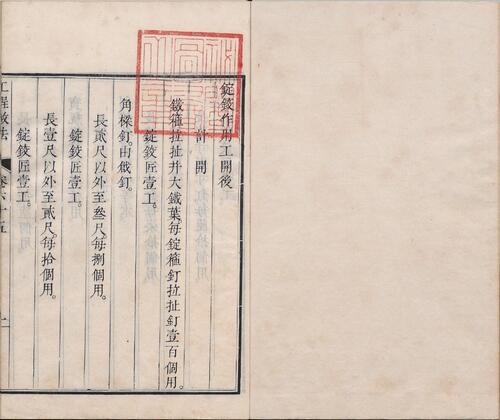 錠鉸作用工開後
計開
鐵箍拉扯并大鐵葉每錠箍釘拉扯釘壹百個用。
錠鉸匠壹工。
角樑釘。由戧釘。
長貳尺以外至叁尺。每捌個用。
錠鉸匠壹工。
長壹尺以外至貳尺。每拾個用。
錠鉸匠壹工。
工程做法
卷六十五